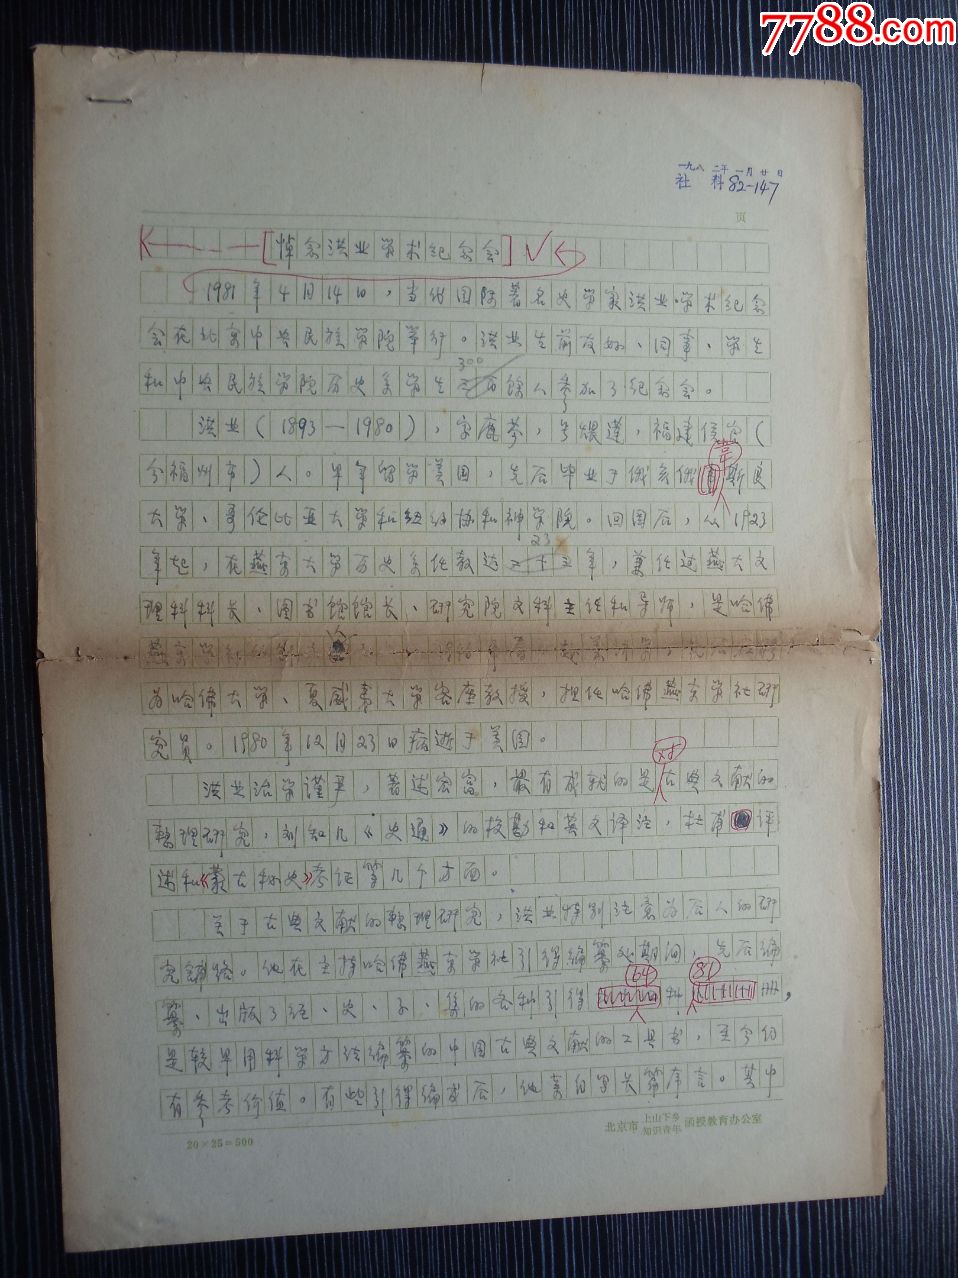 7788.com
一九八二年一月廿日
社科82-147
页
[悼念洪业学术纪念会]
1981年4月14日，当代国际著名史学家洪业学术纪念
会在北京中央民族学院举行。洪业生前友好、同事、学生
300
和中央民族学院历史系学生二百馀人参加了纪念会。
洪业（1893—1980），字鹿芩，号煨莲，福建侯官（
韋
今福州市）人。早年留学美国，先后毕业于俄亥俄斯良
大学、哥伦比亚大学和纽约协和神学院。回国后，从1923
23
年起，在燕京大学历史系任教达二十三年，兼任过燕大文
理科科长、图书馆馆长、研究院文科主任和导师，是哈佛
燕京学社
为哈佛大学、夏威夷大学客座教授，担任哈佛燕京学社研
究员。1980年12月23日病逝于美国。
对
洪业治学谨严，著述宏富，最有成就的是古典文献的
整理研究，刘知几《史通》的校勘和英文译注，杜甫评
述和《蒙古秘史》考证等几个方面。
关于古典文献的整理研究，洪业特别注意为后人的研
究铺路。他在主持哈佛燕京学社引得编纂处期间，先后编
64 81
纂、出版了经、史、子、集的各种引得种册，
是较早用科学方法编纂的中国古典文献的工具书，至今仍
有参考价值。有些引得编成后，他亲自写长篇序言。其中
20×25=500
北京市上山下乡知识青年函授教育办公室